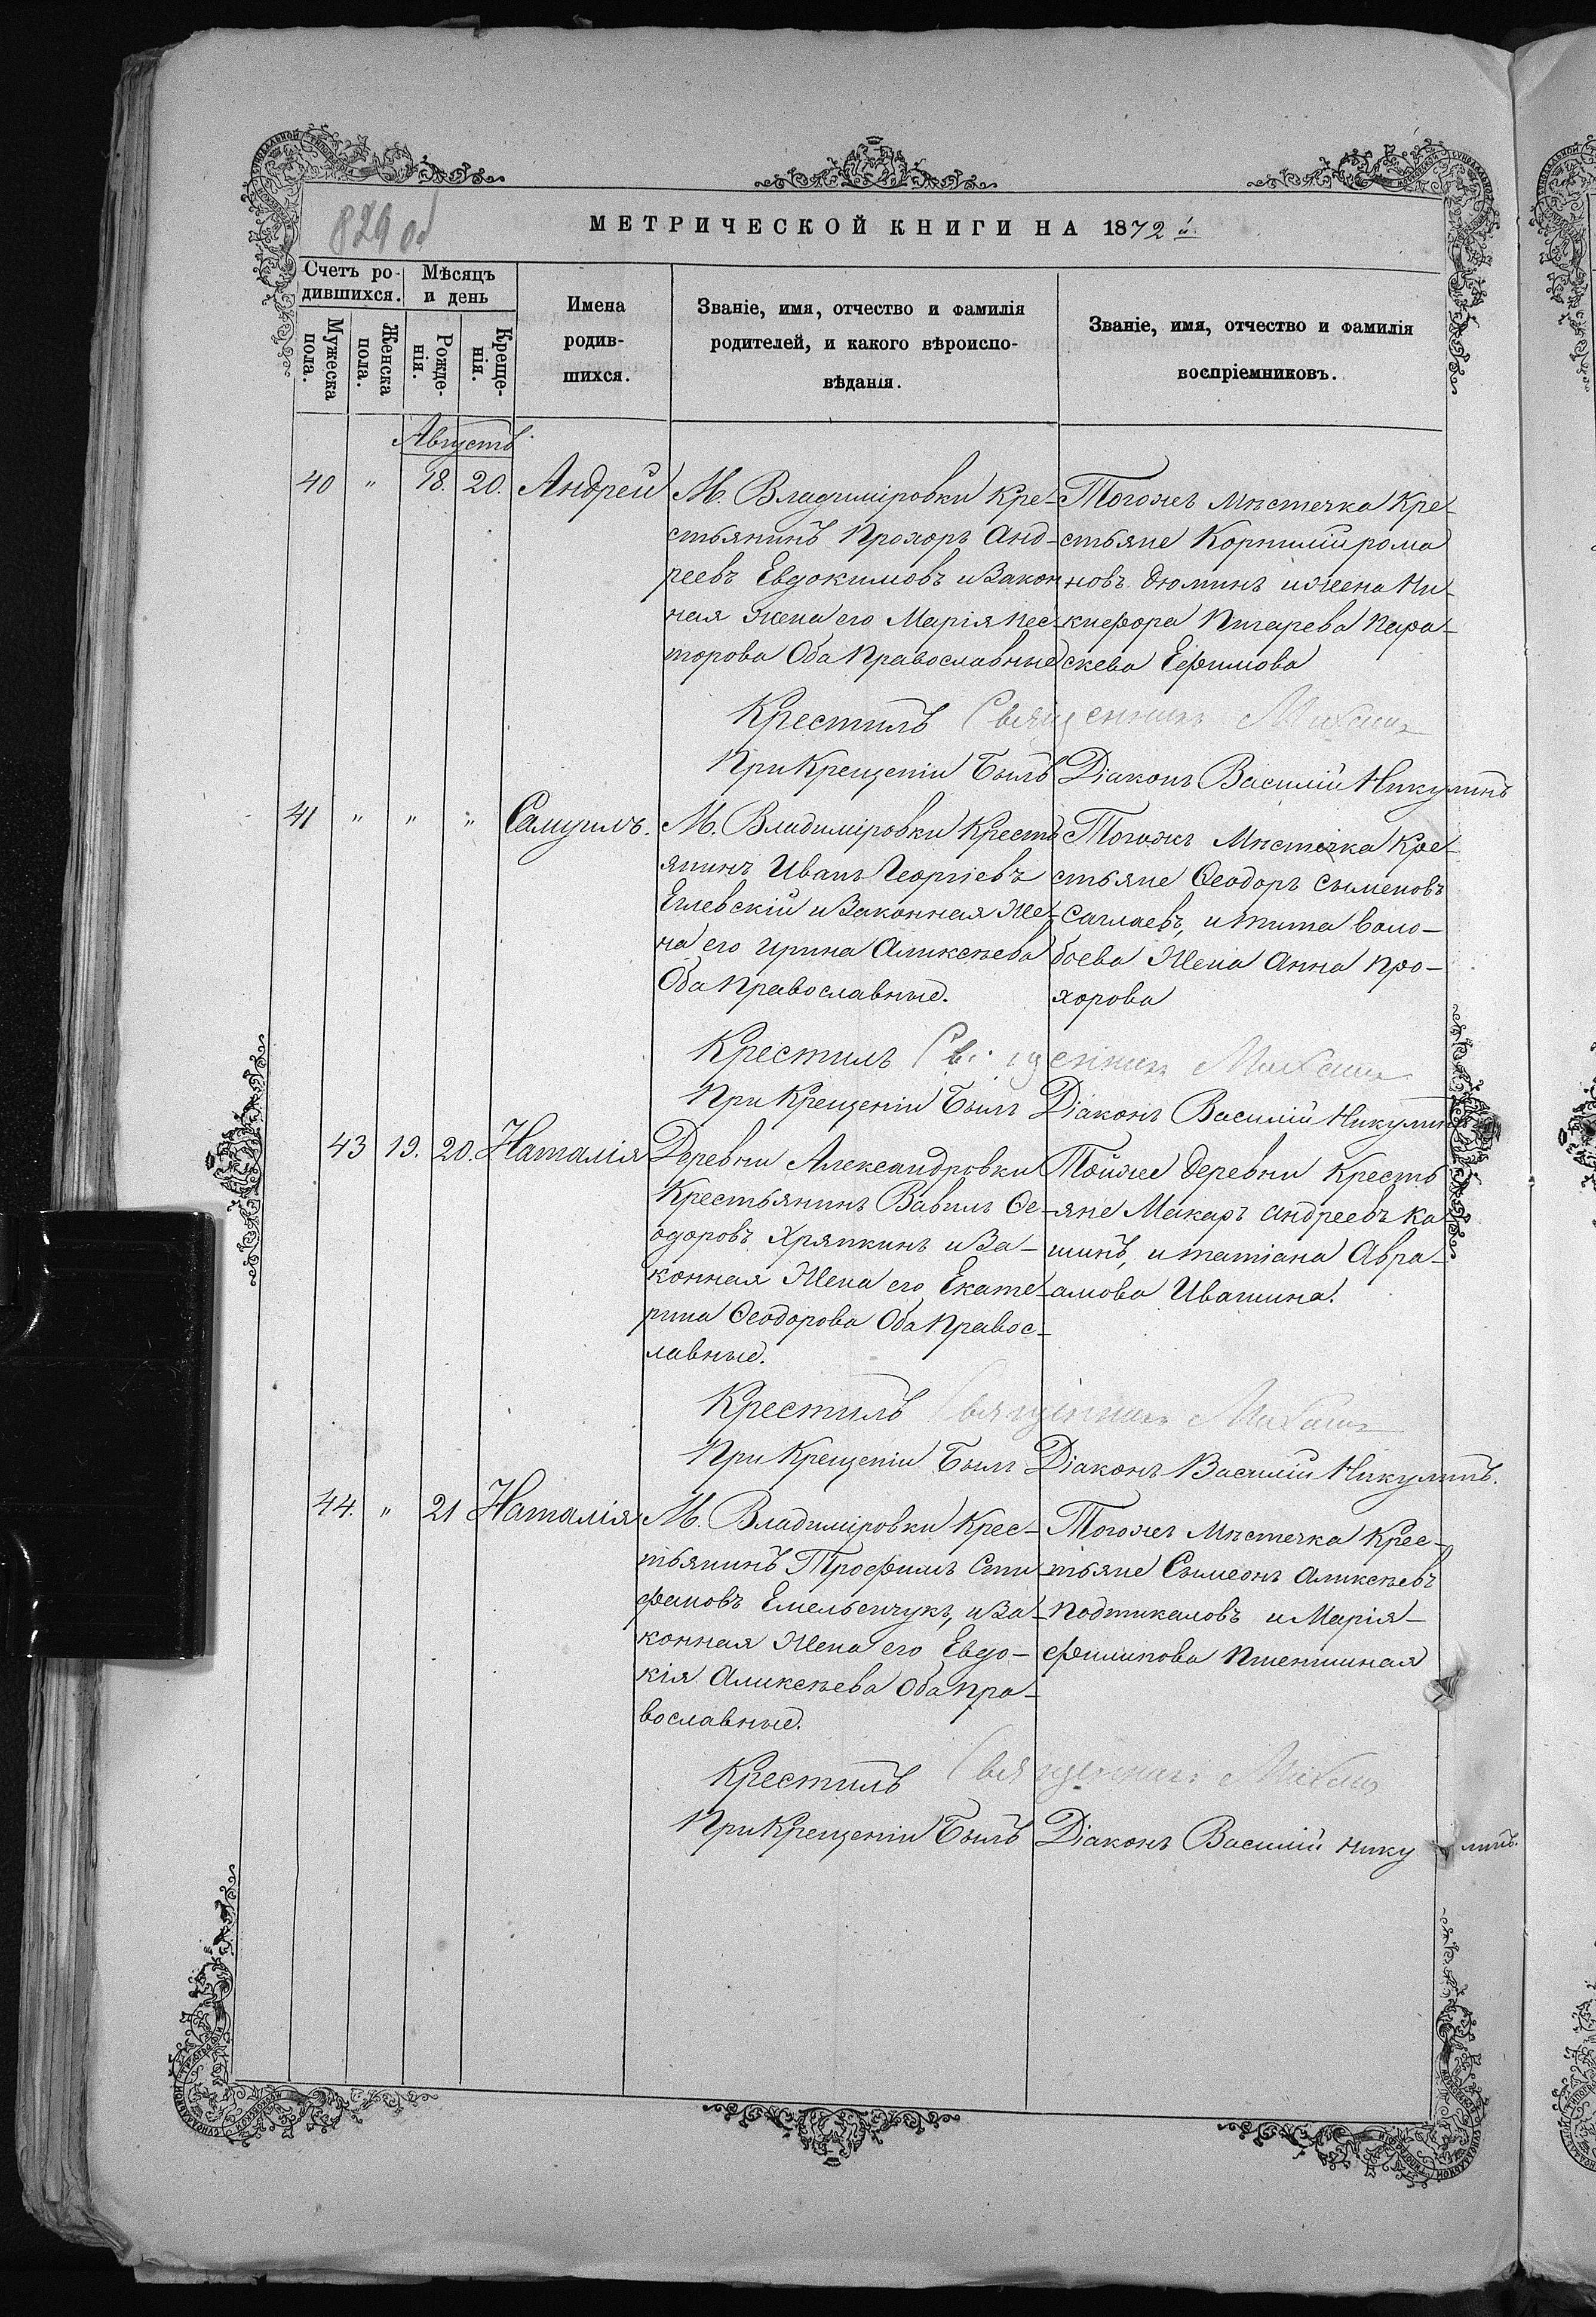 829 об
МЕТРИЧЕСКОЙ КНИГИ НА 1872 й
Счетъ ро-
дившихся.
Мѣсяцъ
и день
Мужеска
пола.
Женска
пола.
Рожде-
нія.
Креще-
нія.
Имена
родив-
шихся.
Званіе, имя, отчество и фамилія
родителей, и какого вѣроиспо-
вѣданія.
Званіе, имя, отчество и фамилія
воспріемниковъ.
Августъ
40 " 18. 20. Андрей
М. Владиміровки Кре-
стьянинъ Прохоръ Анд-
реевъ Евдокимовъ и Закон
ная жена его Марія Нес-
торова Оба Православные
Тогожъ Мѣстечка Кре-
стьяне Корнилій рома
новъ Дюминъ и жена Ни-
кифора Пигарева Пара-
скева Ефимова
Крестилъ Священникъ Михаилъ
При Крещеніи Былъ Діаконъ Василій Никулинъ
41 " " " Самуилъ.
М. Владиміровки Кресть
янинъ Иванъ Георгіевъ
Еглевскій и Законная Же-
на его ирина Аликсѣева
Оба Православные.
Тогожъ Мѣстечка Кре-
стьяне Ѳеодоръ Сыменовъ
Саглаевъ, и тита Воло-
боева Жена Анна Про-
хорова
Крестилъ Священникъ Михаилъ
При Крещеніи Былъ Діаконъ Василій Никулинъ
43 19. 20. Наталія
Деревни Александровки
Крестьянинъ Вавилъ Ѳе-
одоровъ Хряпкинъ и За-
конная Жена его Екате-
рина Ѳеодорова Оба Правос-
лавные.
Тойже деревни Кресть
яне Макаръ андреевъ Ка
шинъ, и татіана Авра-
амова Ивашина.
Крестилъ Священникъ Михаилъ
При Крещеніи Былъ Діаконъ Василій Никулинъ.
44. " 21 Наталія
М. Владиміровки Крес-
тьянинъ Трофимъ Сти
фановъ Емельенчукъ, и За-
конная Жена его Евдо-
кія Аликсѣева Оба Пра-
вославные.
Тогожъ Мѣстечка Крес-
тьяне Сымеонъ Аликсѣевъ
Подтикаловъ и Марія-
филипова Пшеничная
Крестилъ Священникъ Михаилъ
При Крещеніи Былъ Діаконъ Василій Никулинъ.